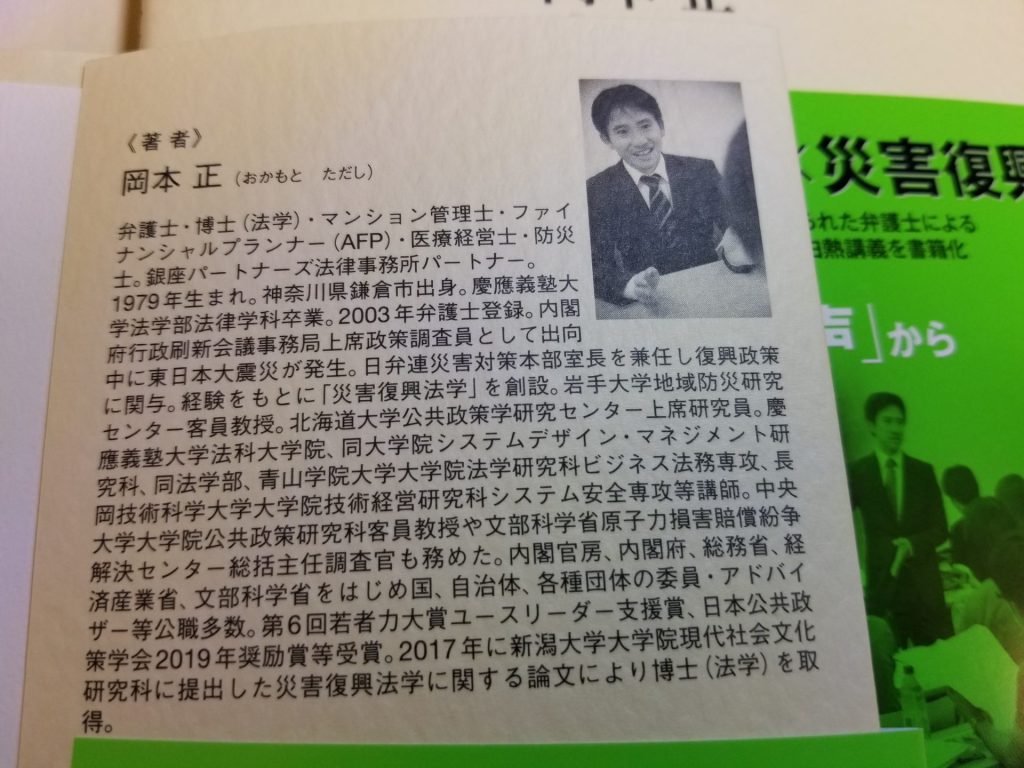 《著者》
岡本 正 (おかもと ただし)
弁護士・博士(法学)・マンション管理士・ファイ
ナンシャルプランナー(AFP)・医療経営士・防災
士。銀座パートナーズ法律事務所パートナー。
1979年生まれ。神奈川県鎌倉市出身。慶應義塾大
学法学部法律学科卒業。2003年弁護士登録。内閣
府行政刷新会議事務局上席政策調査員として出向
中に東日本大震災が発生。日弁連災害対策本部室長を兼任し復興政策
に関与。経験をもとに「災害復興法学」を創設。岩手大学地域防災研究
センター客員教授。北海道大学公共政策学研究センター上席研究員。慶
應義塾大学法科大学院、同大学院システムデザイン・マネジメント研
究科、同法学部、青山学院大学大学院法学研究科ビジネス法務専攻、長
岡技術科学大学大学院技術経営研究科システム安全専攻等講師。中央
大学大学院公共政策研究科客員教授や文部科学省原子力損害賠償紛争
解決センター総括主任調査官も務めた。内閣官房、内閣府、総務省、経
済産業省、文部科学省をはじめ国、自治体、各種団体の委員・アドバイ
ザー等公職多数。第6回若者力大賞ユースリーダー支援賞、日本公共政
策学会2019年奨励賞等受賞。2017年に新潟大学大学院現代社会文化
研究科に提出した災害復興法学に関する論文により博士(法学)を取
得。
災害復興
られた弁護士による
熱講義を書籍化
声」から